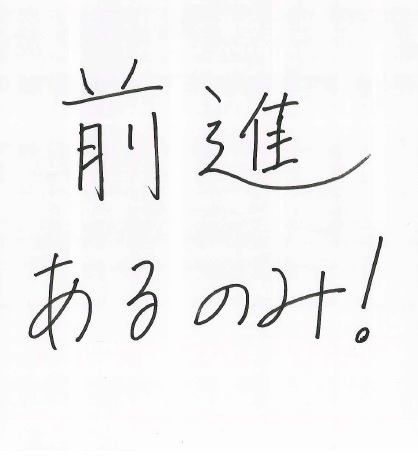 前進
あるのみ!